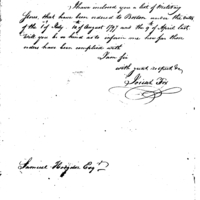 I have inclosed you a list of
Stores, that have been ordered to Boston under the dates
of the 27 July 10 of August 1797 and the 9 of April last
Will you be so kind as to inform me how far those
orders have been complied with
I am Sir
with great respect &c
Josiah Fox
Samuel Hodgdon Esqr